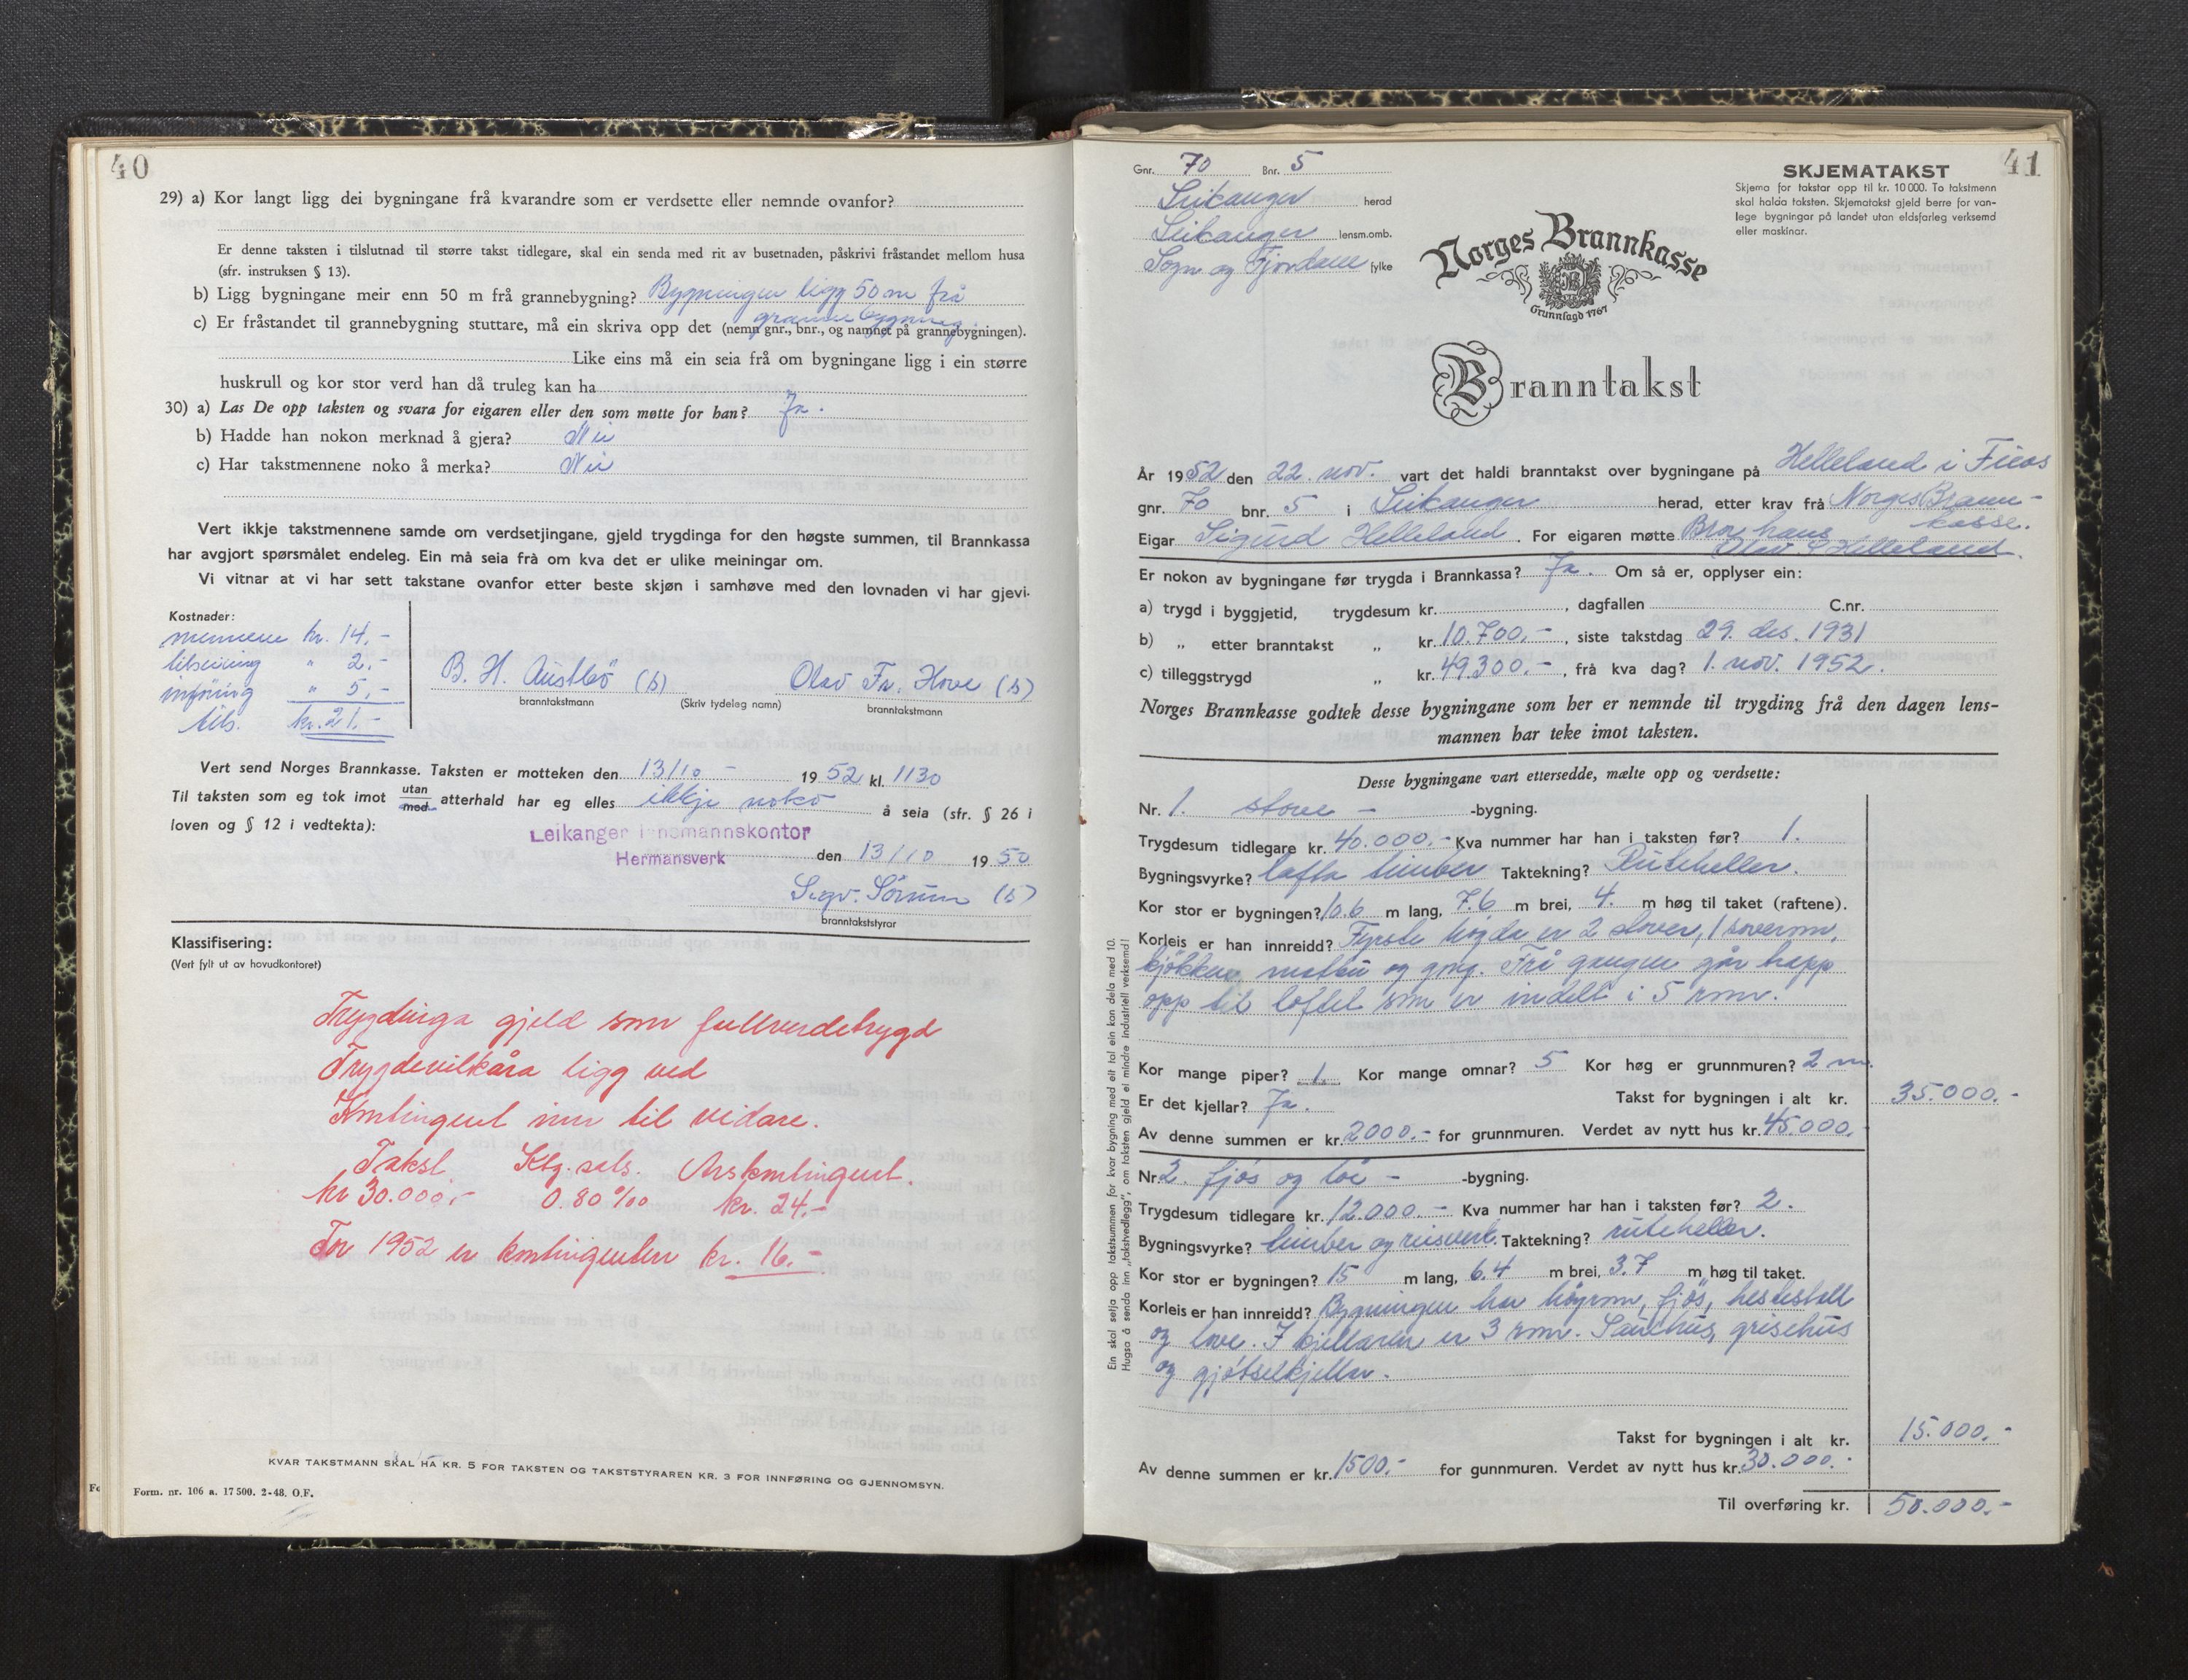 40
29) a) Kor langt ligg dei bygningane frå kvarandre som er verdsette eller nemnde ovanfor?
Er denne taksten i tilslutnad til større takst tidlegare, skal ein senda med rit av busetnaden, påskrivi fråstandet mellom husa
(sfr. instruksen § 13).
b) Ligg bygningane meir enn 50 m frå grannebygning? Bygningen ligg 50 m frå
grannebygning.
c) Er fråstandet til grannebygning stuttare, må ein skriva opp det (nemn gnr., bnr., og namnet på grannebygningen).
Like eins må ein seia frå om bygningane ligg i ein større
huskrull og kor stor verd han då truleg kan ha
30) a) Las De opp taksten og svara for eigaren eller den som møtte for han? Ja.
b) Hadde han nokon merknad å gjera? Nei
c) Har takstmennene noko å merka? Nei
Vert ikkje takstmennene samde om verdsetjingane, gjeld trygdinga for den høgste summen, til Brannkassa
har avgjort spørsmålet endeleg. Ein må seia frå om kva det er ulike meiningar om.
Vi vitnar at vi har sett takstane ovanfor etter beste skjøn i samhøve med den lovnaden vi har gjevi.
Kostnader:
mennene kr. 14,-
tilsening " 2,-
inføring " 5,-
tils. kr. 21,-
B. H. Austbö (s) Olav Fr. Hove (s)
branntakstmann (Skriv tydeleg namn) branntakstmann
Vert send Norges Brannkasse. Taksten er motteken den 13/10 - 1952 kl. 1130
Til taksten som eg tok imot utan/med atterhald har eg elles ikkje noko å seia (sfr. § 26 i
loven og § 12 i vedtekta):
Leikanger lensmannskontor
Hermansverk den 13/10 1950
Sigv. Sörum (s)
branntakststyrar
Klassifisering:
(Vert fylt ut av hovudkontoret)
Trygdinga gjeld som fullverdetrygd
Trygdevilkåra ligg ved
Kontingent inn til vidare.
Takst Ktg.sats. Årskontingent.
kr 30.000,- 0.80 ‰ kr. 24,-
For 1952 er kontingenten kr. 16.-
KVAR TAKSTMANN SKAL HA KR. 5 FOR TAKSTEN OG TAKSTSTYRAREN KR. 3 FOR INNFØRING OG GJENNOMSYN.
Form. nr. 106 a. 17 500. 2-48. O.F.
41
Gnr. 70 Bnr. 5
Leikanger herad
Leikanger lensm.omb.
Sogn og Fjordane fylke
SKJEMATAKST
Skjema for takstar opp til kr. 10 000. To takstmenn
skal halda taksten. Skjematakst gjeld berre for van-
lege bygningar på landet utan eldsfarleg verksemd
eller maskinar.
Norges Brannkasse
Grunnlagd 1767
Branntakst
År 1952 den 22. nov. vart det haldi branntakst over bygningane på Helleland i
gnr. 70 bnr. 5 i Leikanger herad, etter krav frå Norges Brann-
kasse.
Eigar Sigurd Helleland. For eigaren møtte Bror hans
Olav S Helleland.
Er nokon av bygningane før trygda i Brannkassa? Ja. Om så er, opplyser ein:
a) trygd i byggjetid, trygdesum kr. , dagfallen C.nr.
b) „ etter branntakst „ kr. 10.700,- , siste takstdag 29. des. 1931
c) tilleggstrygd „ kr. 49.300,- , frå kva dag? 1. nov. 1952.
Norges Brannkasse godtek desse bygningane som her er nemnde til trygding frå den dagen lens-
mannen har teke imot taksten.
Desse bygningane vart ettersedde, mælte opp og verdsette:
Nr. 1. stove - -bygning.
Trygdesum tidlegare kr. 40.000.- Kva nummer har han i taksten før? 1.
Bygningsvyrke? lafta timber Taktekning? Ruteheller.
Kor stor er bygningen? 10.6 m lang, 7.6 m brei, 4. m høg til taket (raftene).
Korleis er han innreidd? Fyrste högda er 2 stover, 1 soverom,
kjökken, matbu og gang. Frå gangen går trapp
opp til loftet som er indelt i 5 rom.
Kor mange piper? 1. Kor mange omnar? 5 Kor høg er grunnmuren? 2 m.
Er det kjellar? Ja. Takst for bygningen i alt kr. 35.000.-
Av denne summen er kr. 2000.- for grunnmuren. Verdet av nytt hus kr. 45.000.
Nr. 2. fjös og löe - -bygning.
Trygdesum tidlegare kr. 12.000.- Kva nummer har han i taksten før? 2.
Bygningsvyrke? timber og reisverk. Taktekning? ruteheller.
Kor stor er bygningen? 15 m lang, 6.4 m brei, 3.7 m høg til taket.
Korleis er han innreidd? Bygningen har höyrom, fjös, hestestall
og love. I kjellaren er 3 rom. Sauehus, grisehus
og gjötselkjellar.
Takst for bygningen i alt kr. 15.000.-
Av denne summen er kr. 1500.- for gunnmuren. Verdet av nytt hus kr. 30.000.-
Til overføring kr. 50.000.-
Ein skal setja opp takstsummen for kvar bygning med eit tal ein kan dela med 10.
Hugsa å senda inn „takstvedlegg", om taksten gjeld ei mindre industriell verksemd!